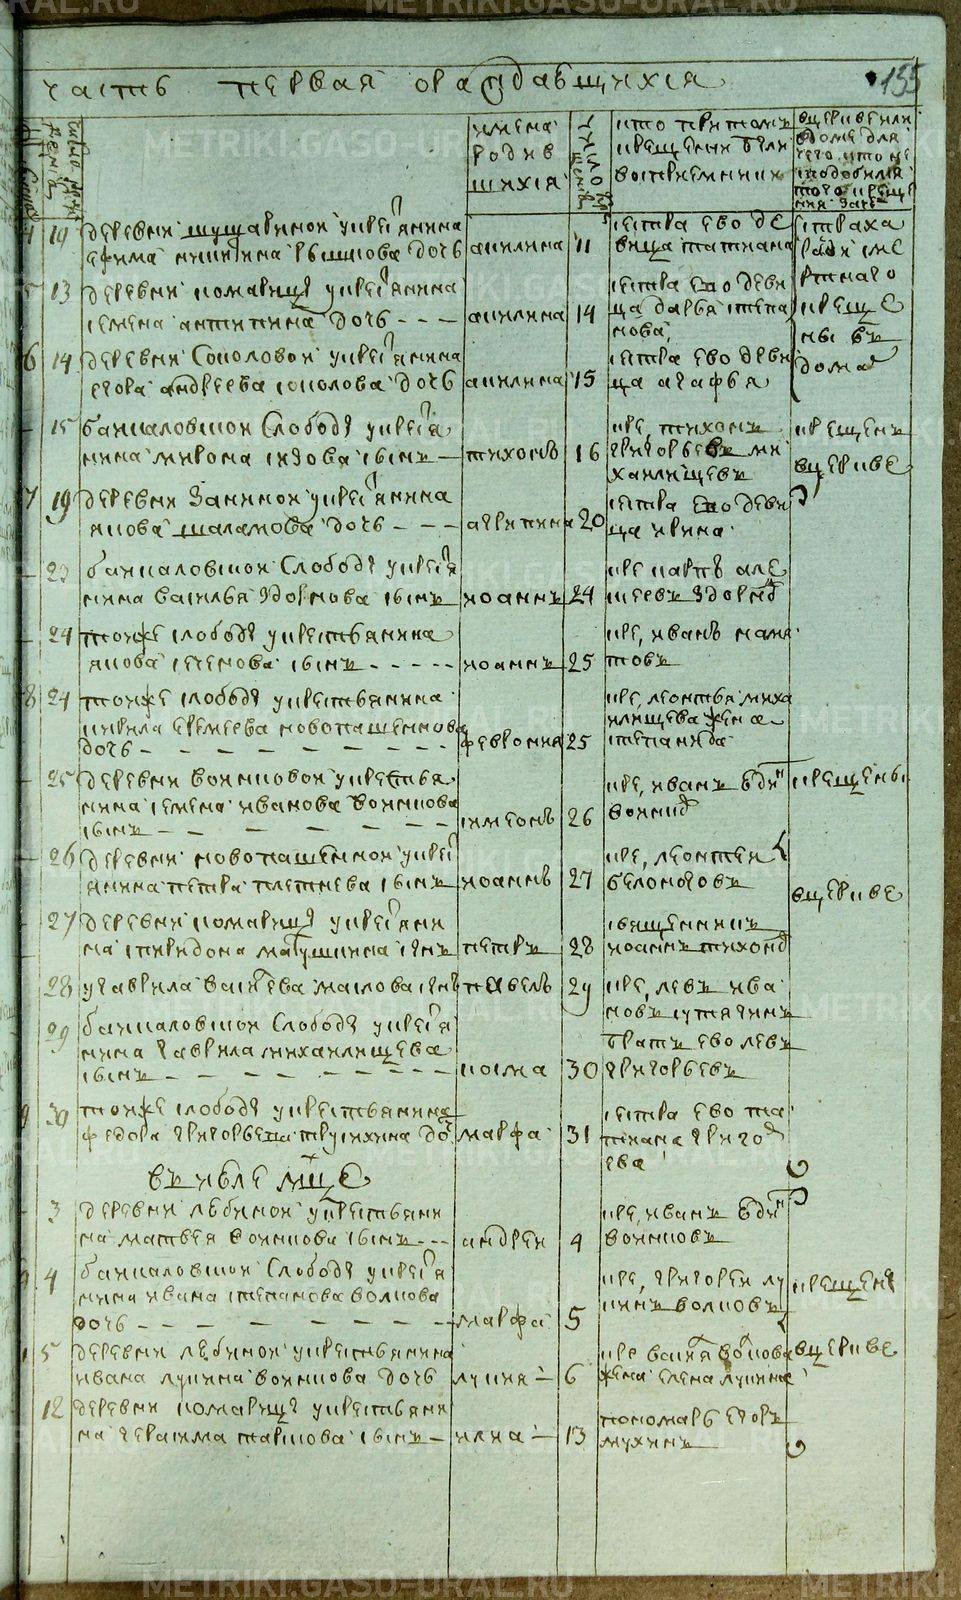 часть первая ораждающихся
155
имена
родив
шихся
число
кто притомъ
крещении были
восприемники
вцеркве или
вдоме для
чего что не
сподобился
того креще
ния
10 деревни шушариной укресть янина
ефима никитина рышкова дочь акилина 11
сестра ево де
вица татиана
страха
ради сме
ртнаго
креще
ны въ
дома
13 деревни комарицы укрестьянина
семена антипина дочь акилина 14
сестра ево деви
ца дарья степа
нова
6 14 деревни Соколовой укрестьянина
егора андреева соколова дочь акилина 15
сестра ево деви
ца агафья
15 баикаловской Слободы укрестья
нина мирона сизова сынъ тихонъ 16
кре, тихонъ
григорьевъ ми
хаилищевъ
крещенъ
вцеркве
7 19 деревни Заниной укрестьянина
якова шаламова дочь агрипина 20
сестра ево деви
ца ирина
23 баикаловской Слободы укрестья
нина василья здорнова сынъ иоаннъ 24
кре карпъ але
ксеевъ здорнов
24 тоиже слободы укрестьянина
якова семенова сынъ иоаннъ 25
кре, иванъ маня
товъ
8 24 тоиже слободы укрестьянина
кирила еремеева новопашеннова
дочь феврониа 25
кре, леонтья миха
илищева жена
степанида
25 деревни воинковой укрестья
нина семена иванова воинкова
сынъ симеонъ 26
кре, иванъ
воинков
крещены
26 деревни новопашенной укресть
янина петра плетнева сынъ иоаннъ 27
кре, леонтей
белоноговъ
вцеркве
27 деревни комарицы укрестьяни
на спиридона матушкина сынъ петръ 28
священникъ
иоаннъ тихонов
28 угаврила васильева маслова сынъ павелъ 29
кре, левъ ива
новъ сутягинъ
29 баикаловской Слободы укрестья
нина гаврила михаилищева
сынъ косма 30
братъ ево левъ
григорьевъ
9 30 тоиже слободы укрестьянина
федора григорьева трусихина до марфа 31
сестра ево та
тиана григо
ева
въ июле мце
3 деревни лебкиной укрестьяни
на матвея воинкова сынъ андреи 4
кре, иванъ
воинковъ
4 баикаловской Слободы укрестья
нина ивана степанова волкова
дочь марфа 5
кре, григореи лу
кинъ волковъ
крещены
5 деревни лебкиной укрестьянина
ивана лукина воинкова дочь лукия 6
кре василья волкова
жена елена лукина
вцеркве
12 деревни комарицы укрестьяни
на герасима паршова сынъ илиа 13
пономарь егоръ
мухинъ